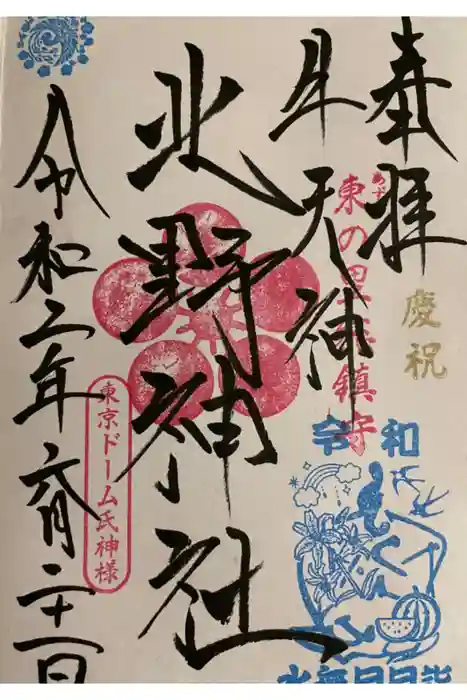 奉拝
慶祝
東の
鎮守
牛天神
北野神社
東京ドーム氏神様
令和二年六月二十一日
令和
水無月